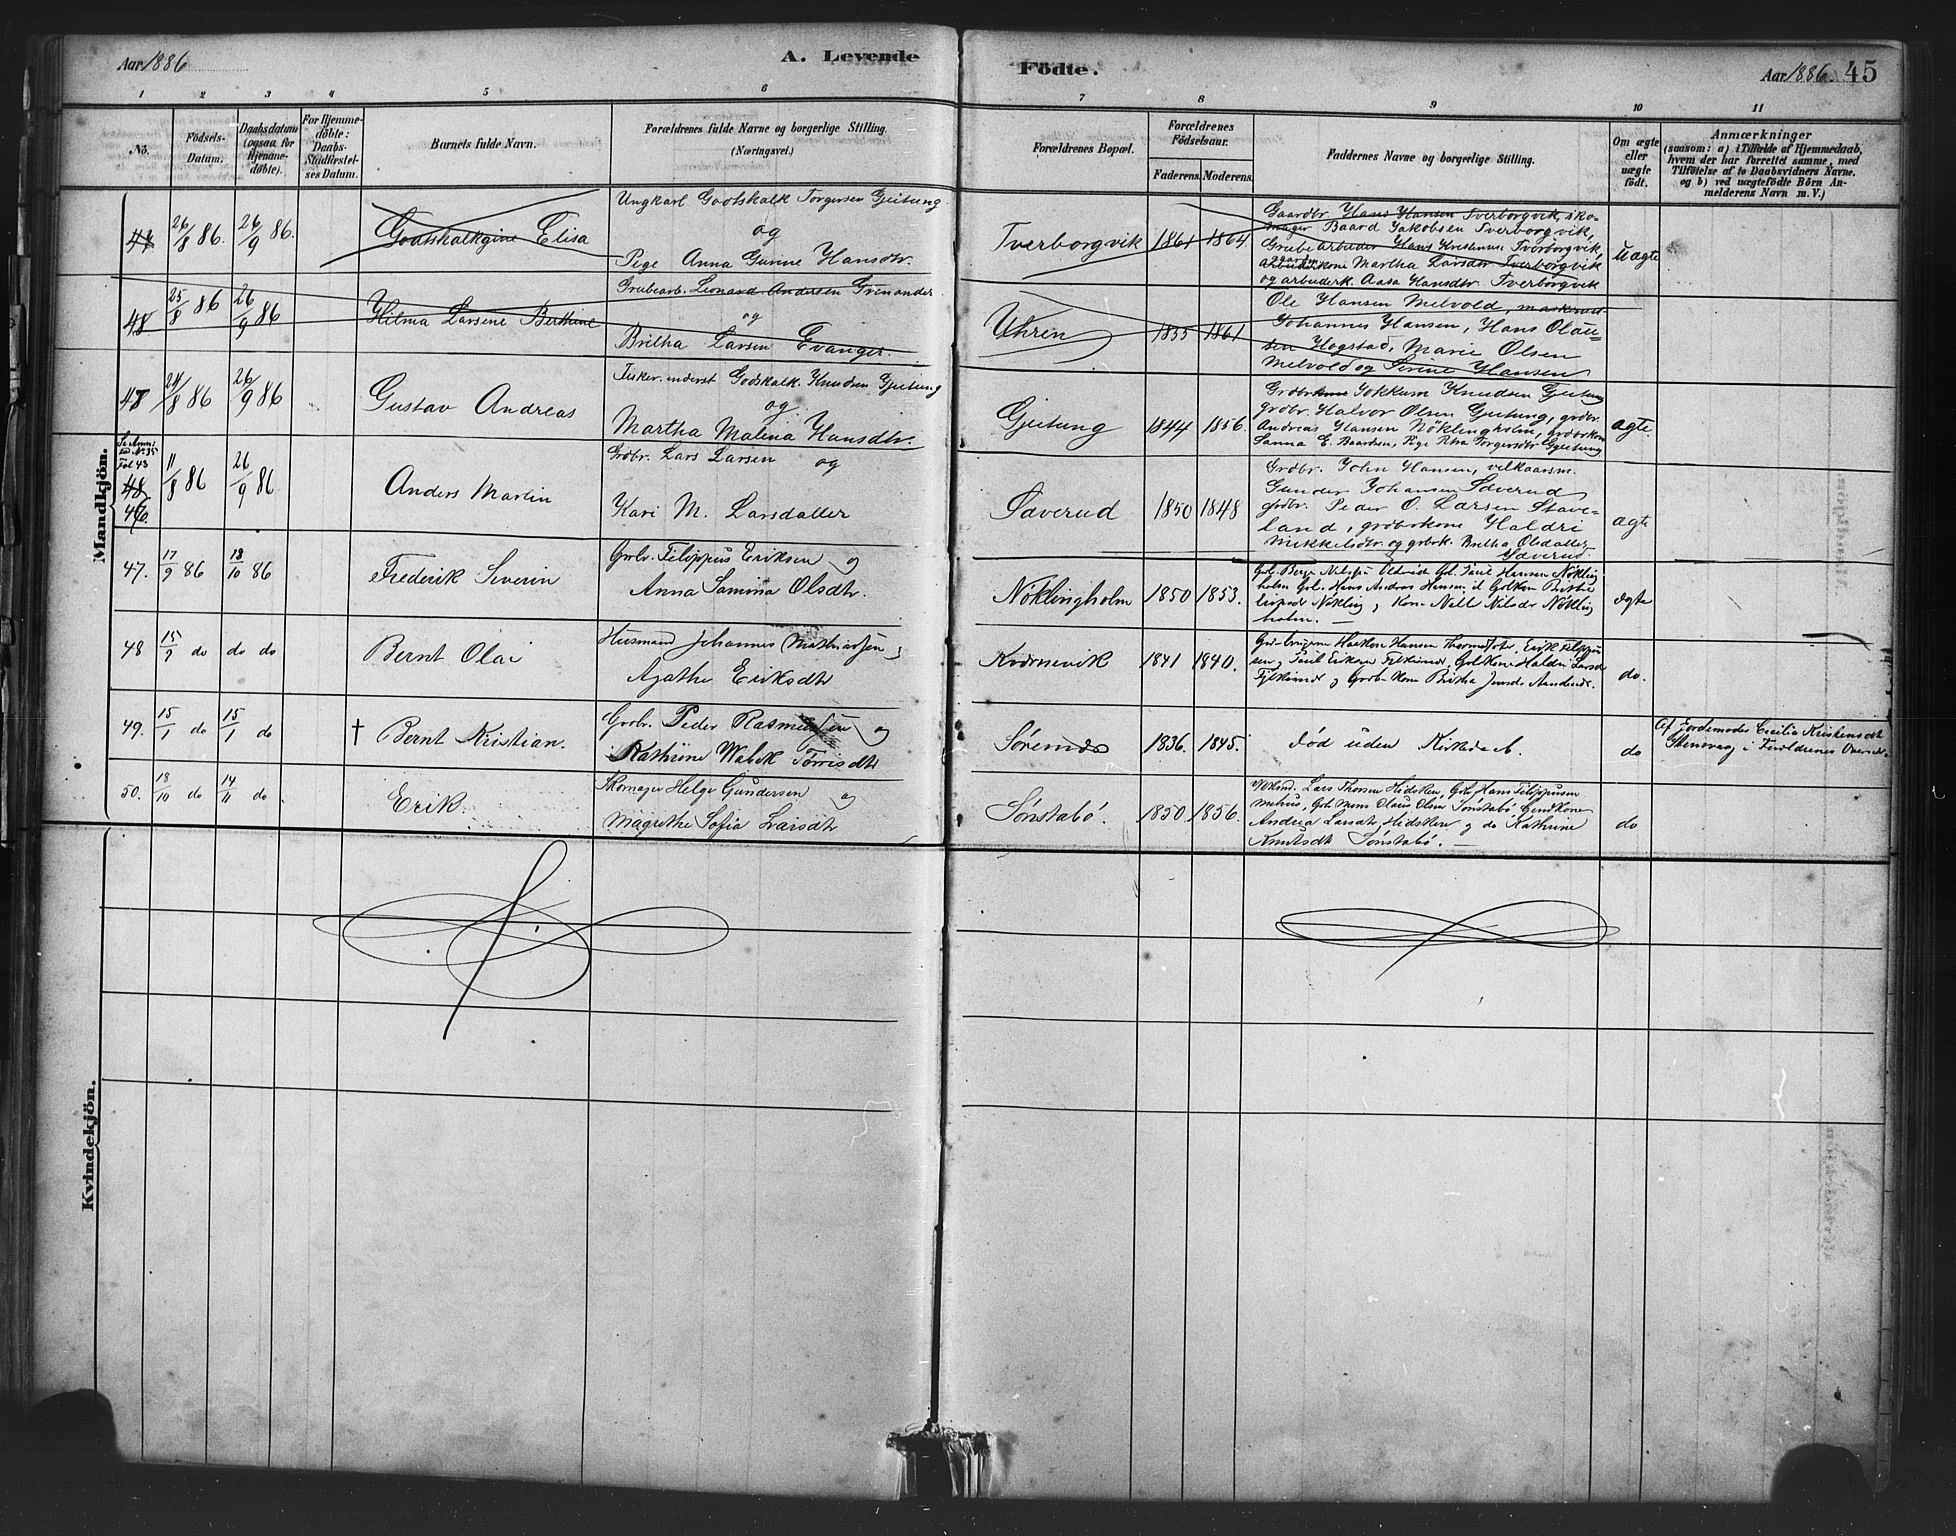 Aar 1886
A. Levende
Födte.
Aar 1886. 45
1 2 3 4 5 6 7 8 9 10 11
No.
Födsels-
Datum.
Daabsdatum
(ogsaa for
Hjemme-
döbte).
For Hjemme-
döbte:
Daabs-
Stadfæstel-
ses Datum.
Barnets fulde Navn.
Forældrenes fulde Navne og borgerlige Stilling.
(Næringsvei.)
Forældrenes Bopæl.
Forældrenes
Födselsaar.
Faderens. Moderens.
Faddernes Navne og borgerlige Stilling.
Om ægte
eller
uægte
födt.
Anmærkninger
(saasom: a) i Tilfælde af Hjemmedaab,
hvem der har forrettet samme, med
Tilföielse af to Daabsvidners Navne.
og b) ved uægtefödte Börn An-
melderens Navn m. V.)
Mandkjön.
26/8 86. 26/9 86.
Godtskalkgine Elisa
Ungkarl Godtskalk Torgersen Gjeitung
og
Pige Anna Gurine Hansdtr.
Tverborgvik 1861 1864
Gaardbr. Hans Hansen Tverborgvik, sko-
mager Baard Jakobsen Tverborgvik,
Grubearbeider Hans Kristensen Tverborgvik,
arbeiderkone Martha Larsdtr Tverborgvik
og arbeiderk. Aasa Hansdtr. Tverborgvik
Uægte
48 25/8 86 26/9 86
Hilma Larsene Berthine
Grubearb. Leonard Andersen Grenander
og
Britha Larsen Evanger.
Uhren 1855 1861
Ole Hansen Melvold,
Johannes Hansen, Hans Olau-
sen Hogstad, Marie Olsen
Melvold og Serine Hansen
24/8 86 26/9 86
Gustav Andreas
Fisker. inderst Godskalk Knudsen Gjeitung
og
Martha Malena Hansdtr.
Gjeitung 1844 1856
Grdbr. Jokkum Knudsen Gjeitung
grdbr. Halvor Olsen Gjeitung, grdbr.
Andreas Hansen Nöklingholm, grdbrkone
Sanna E. Baardsen, Pige Torgersdtr. Gjeitung
ægte.
Fol 43
48
46.
11/8 86 26/9 86
Anders Martin
Grdbr. Lars Larsen og
Kari M. Larsdatter
Sæverud 1850 1848
Grdbr. John Hansen, vilkaarsm.
Gunder Johansen Sæverud
grdbr. Peder O. Larsen Stave-
land, grdbrkone Haldri
Mikkelsdtr. og grbrk. Britha Olsdatter
Sæverud
ægte
47. 17/9 86 13/10 86
Frederik Severin
Grbr. Filippus Eriksen og
Anna Samina Olsdtr.
Nöklingholm 1850 1853.
holm Gbr. Hans Andreas Hansen
holm. —
ægte
48 15/9 do do do
Bernt Olai
Husmand Johannes Mathiassen og
Agathe Eriksdtr
Kvernevik 1841 1840.
do.
49. 15/1 do 15/1 do
† Bernt Kristian.
Grbr. Peder Rasmussen og
Kathrine Wabek Torrisdtr
Sörenæs 1836. 1845.
död uden Kirkedaab.
do
Af Jordemoder Cecilia Kristensdt
50. 18/10 do 14/11 do
Erik.
Skomager Helge Gundersen og
Magrethe Sofia Larsdtr
Sönstabö. 1850 1856.
Lars Thorsen Hidsken, Gbr. Hans Filippusen
Mehus, Gbr. Mons Olaus Olsen Sönstabö
Andrea Larsdtr Hidsken og do Kathrine
Knutsdt Sönstabö. —
do
Kvindekjön.